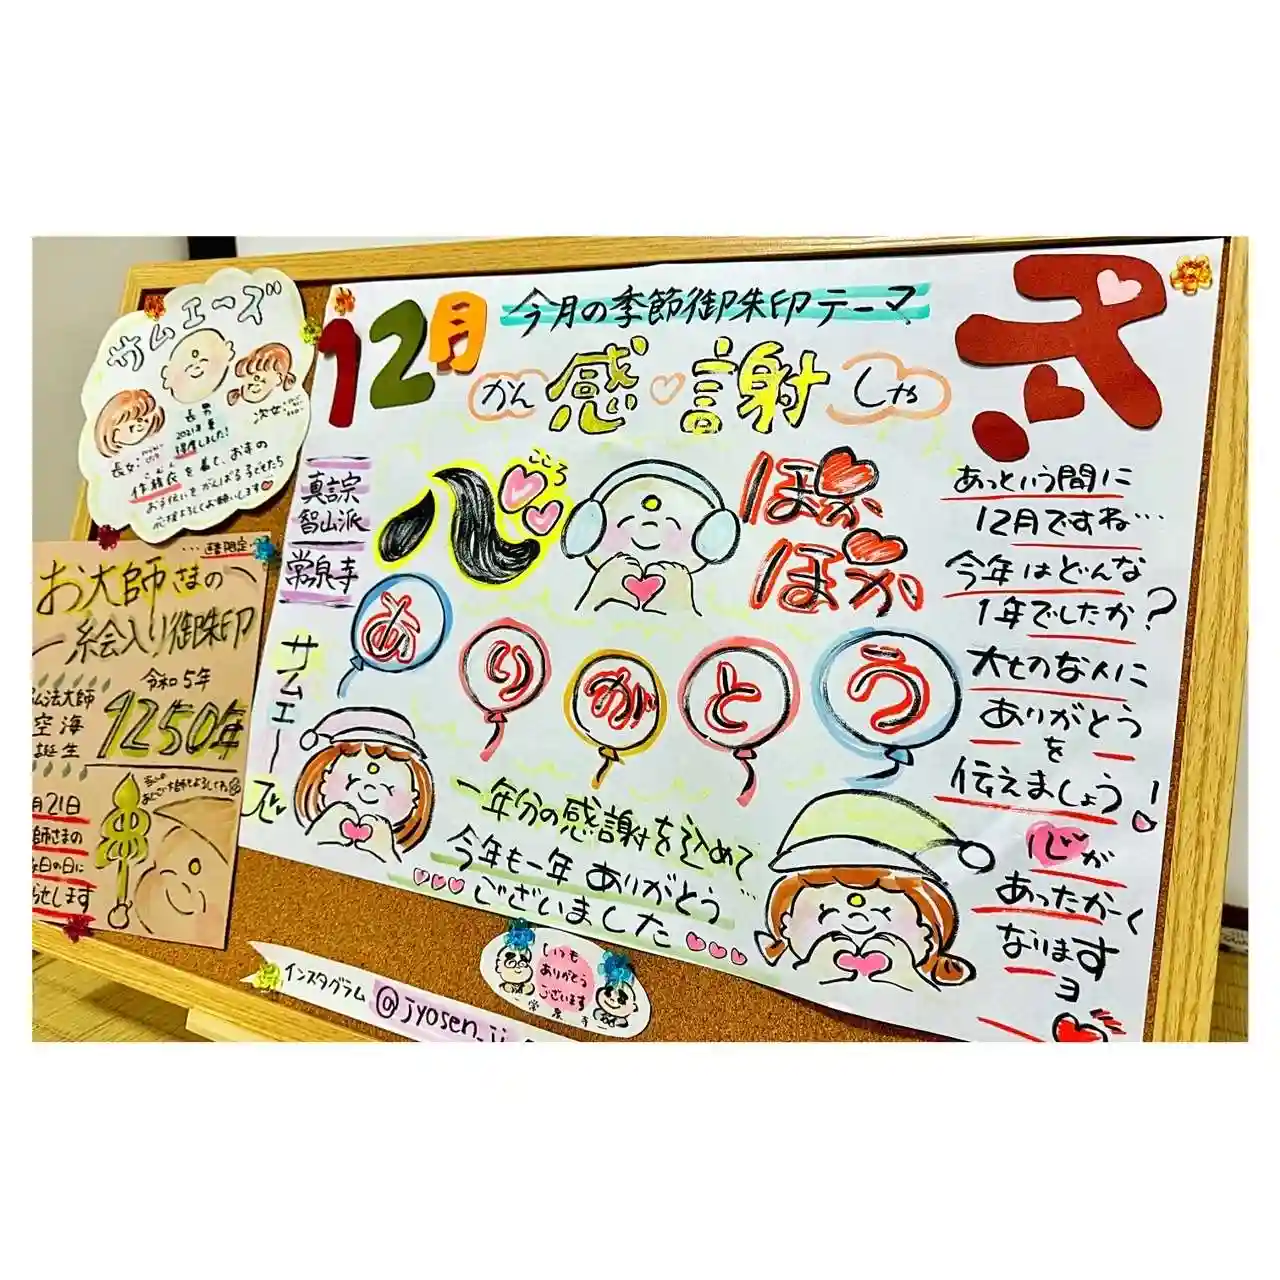 サムエーズ
長男
2021年夏
得度しました!
長女:
次女:
作務衣を着て、お寺の
お手伝いをがんばる子どもたち
応援よろしくお願いします
お大師さまの
絵入り御朱印
令和5年
弘法大師
空海
誕生
1250年
月21日
師さまの
日の日に
せします
12月
今月の季節御朱印テーマ
かん 感謝 しゃ
真言宗
智山派
常泉寺
サムエーズ
こころ
心
ほか
ほか
ありがとう
一年分の感謝を込めて…
今年も一年 ありがとう
ございました
弐
あっという間に
12月ですね…
今年はどんな
1年でしたか?
大切な人に
ありがとう
を
伝えましょう!
心が
あったかーく
なります
ヨ
いつも
ありがとう
ございます
常泉寺
インスタグラム @jyosen_